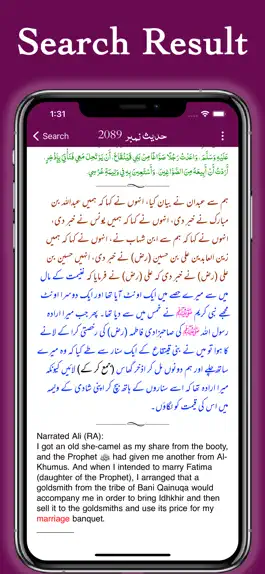 Search Result
1:31
Search
حدیث نمبر 2089
عَلَيْهِ وَسَلَّمَ، وَاعَدْتُ رَجُلًا صَوَّاغًا مِنْ بَنِي قَيْنُقَاعَ، أَنْ يَرْتَحِلَ مَعِي فَنَأْتِيَ بِإِذْخِرٍ
أَرَدْتُ أَنْ أَبِيعَهُ مِنَ الصَّوَّاغِينَ، وَأَسْتَعِينَ بِهِ فِي وَلِيمَةِ عُرُسِي.
ہم سے عبدان نے بیان کیا، انہوں نے کہا کہ ہمیں عبداللہ بن
مبارک نے خبر دی، انہوں نے کہا کہ ہمیں یونس نے خبر دی،
انہوں نے کہا کہ ہم سے ابن شہاب نے، انہوں نے کہا کہ ہمیں
زین العابدین علی بن حسین (رض) نے خبر دی، انہیں حسین بن
علی (رض) نے خبر دی کہ علی (رض) نے فرمایا کہ غنیمت کے مال
میں سے میرے حصے میں ایک اونٹ آیا تھا اور ایک دوسرا اونٹ
مجھے نبی کریم ﷺ نے خمس میں سے دیا تھا۔ پھر جب میرا ارادہ
رسول اللہ ﷺ کی صاحبزادی فاطمہ (رض) کی رخصتی کرا کے لانے
کا ہوا تو میں نے بنی قینقاع کے ایک سنار سے طے کیا کہ وہ میرے
ساتھ چلے اور ہم دونوں مل کر اذخر گھاس (جمع کر کے) لائیں کیونکہ
میرا ارادہ تھا کہ اسے سناروں کے ہاتھ بیچ کر اپنی شادی کے ولیمہ
میں اس کی قیمت کو لگاؤں۔
Narrated Ali (RA):
I got an old she-camel as my share from the booty,
and the Prophet ﷺ had given me another from Al-
Khumus. And when I intended to marry Fatima
(daughter of the Prophet), I arranged that a
goldsmith from the tribe of Bani Qainuqa would
accompany me in order to bring Idhkhir and then
sell it to the goldsmiths and use its price for my
marriage banquet.